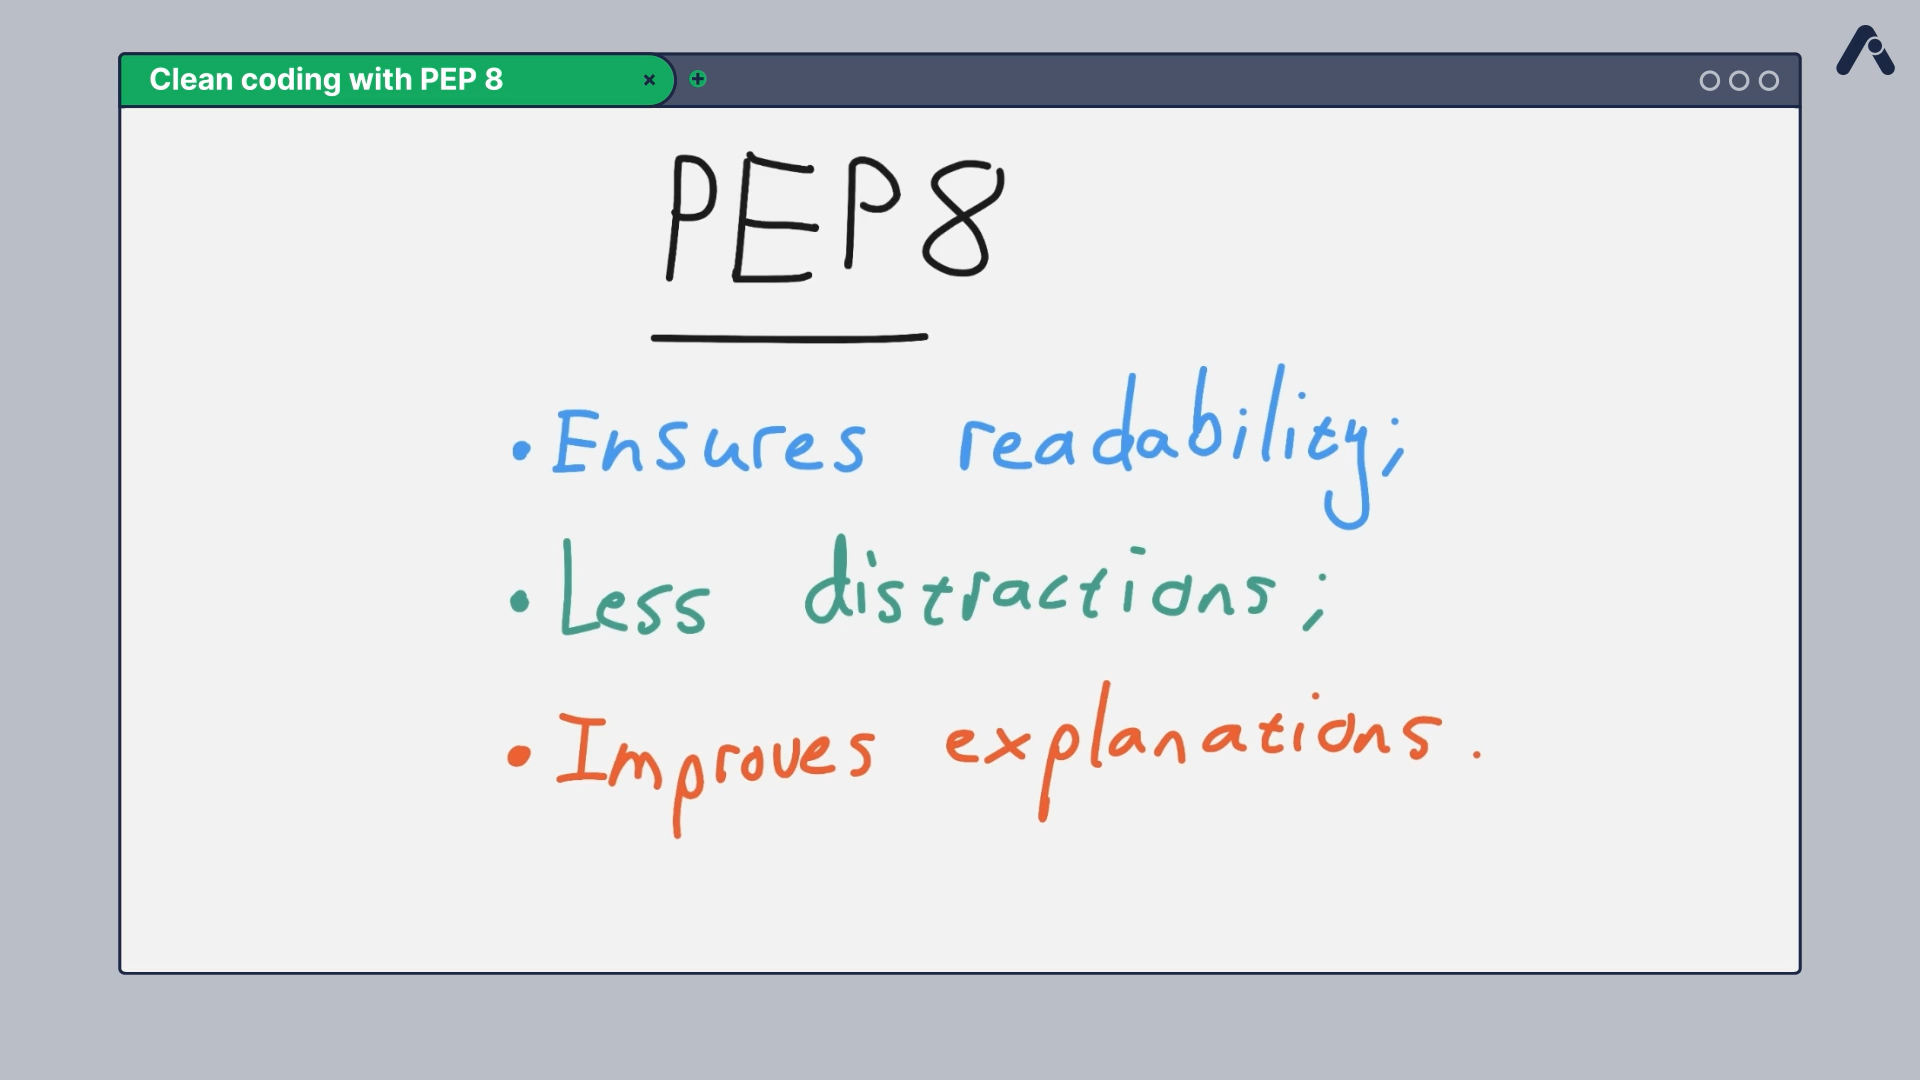 Clean coding with PEP 8
PEP8
• Ensures readability;
• Less distractions;
• Improves explanations.